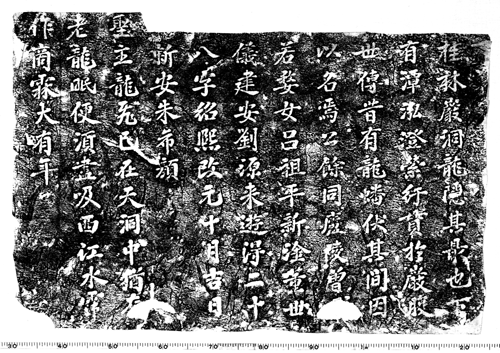 桂林巖洞龍隱其最也下
有潭泓澄縈紆貫於巖股
世傳昔有龍蟠伏其間因
以名焉公餘同廬陵曾
若婺女呂祖平新淦董世
儀建安劉源来遊得二十
八字紹熙改元十月吉日
新安朱希顔
聖主龍飛已在天洞中猶
老龍眠便須盡吸西江水
作商霖大有年